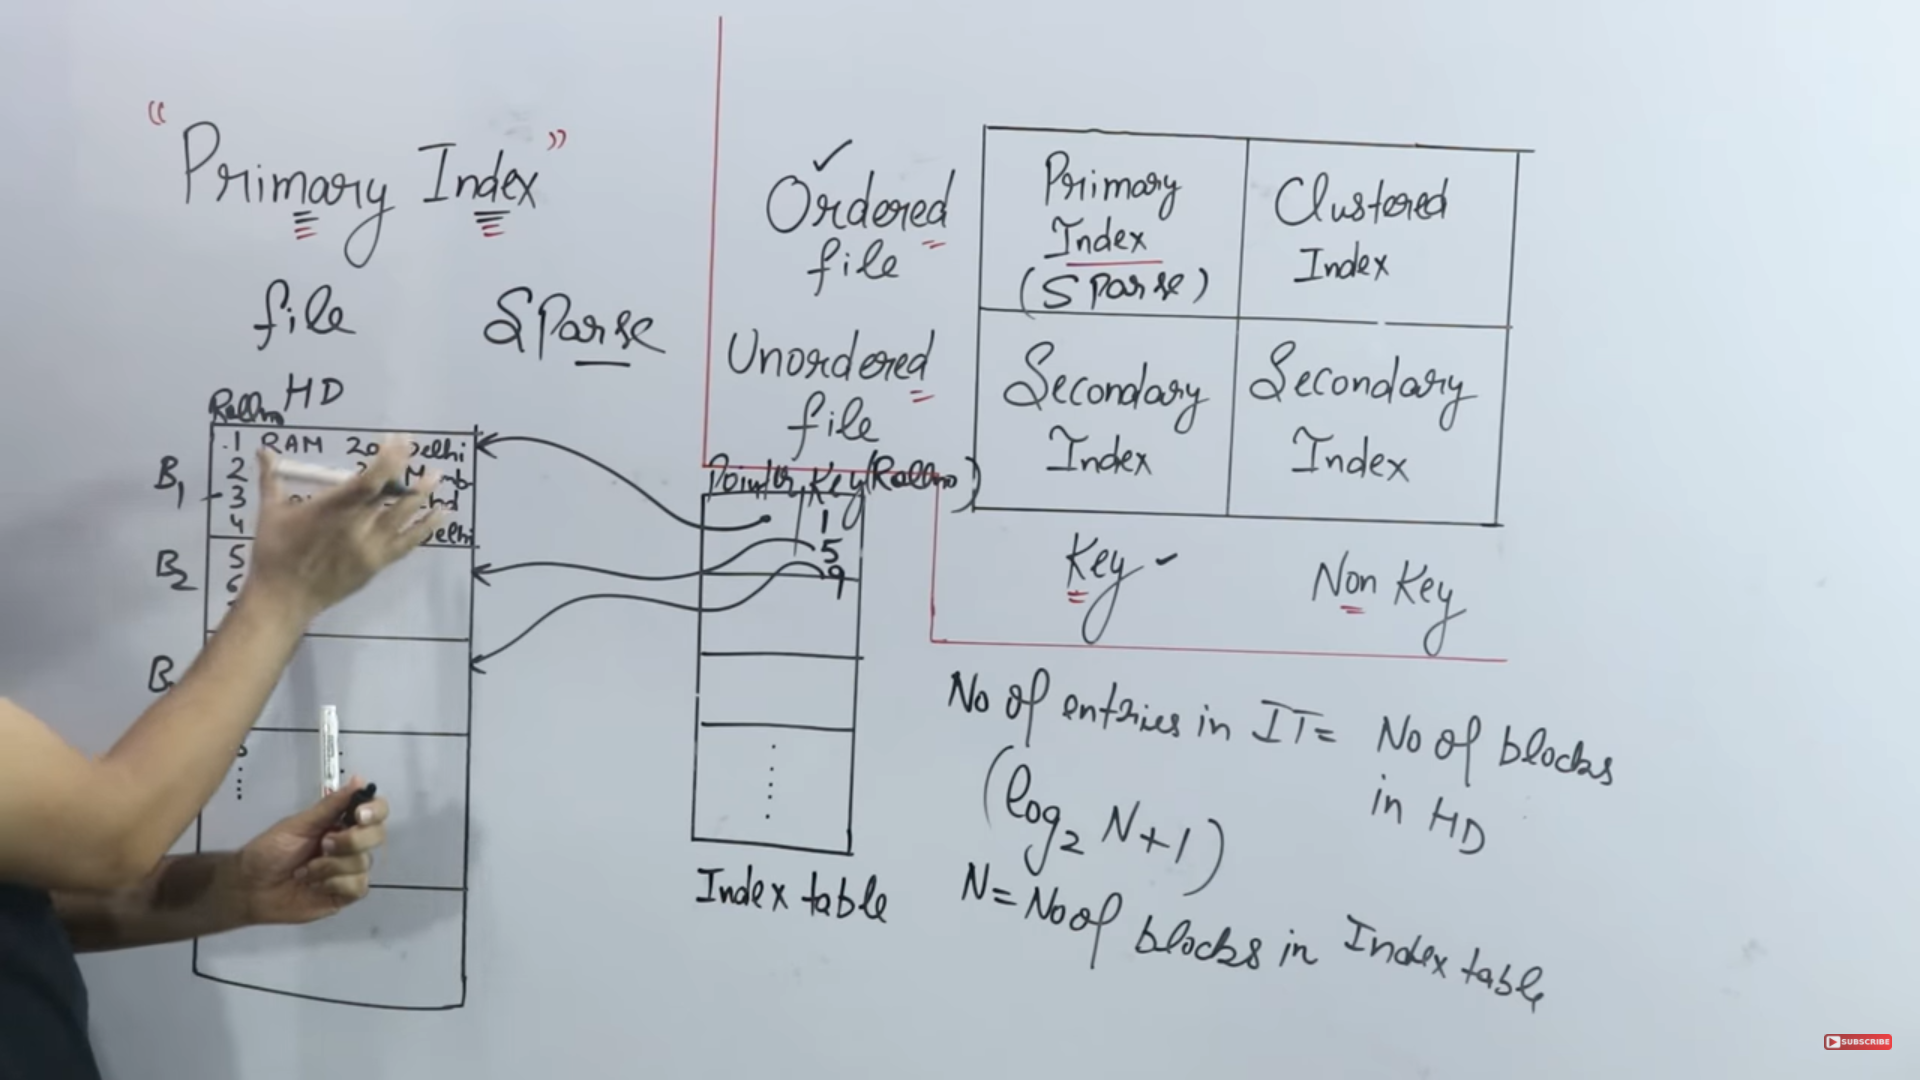 "Primary Index"
file Sparse
HD
Rollno
1 RAM 20 Delhi
2
3
4 Delhi
B1
5
6
B2
B
Pointer Key (Rollno)
1
5
9
Index table
Ordered
file
Unordered
file
Primary
Index
(Sparse)
Clustered
Index
Secondary
Index
Secondary
Index
Key
Non Key
No of entries in IT = No of blocks
in HD
(log2 N+1)
N = No of blocks in Index table
SUBSCRIBE